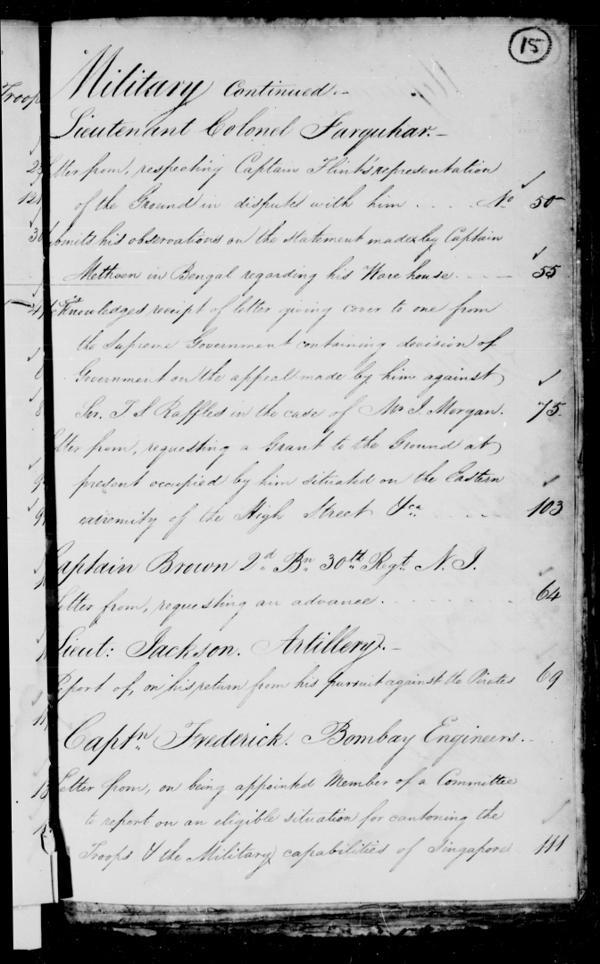 15
Military Continued.-
Lieutenant Colonel Farquhar.-
Letter from, respecting Captain Flint's representation
of the Ground in dispute with him . . . . No 50
Submits his observations on the statement made by Captain
Methven in Bengal regarding his Ware house . . . 55
Acknowledges receipt of letter giving cover to one from
the Supreme Government containing decision of
Government on the appeal made by him against
Sir. T S Raffles in the case of Mr J. Morgan. 75
Letter from, requesting a Grant to the Ground at
present occupied by him situated on the Eastern
extremity of the High Street &ca . . . . . 103
Captain Brown 2d Bn 30th Regt N. I.
Letter from, requesting an advance . . . . . . . 64
Lieut: Jackson. Artillery.-
Report of, on his return from his pursuit against the Pirates 69
Captn Frederick. Bombay Engineers.-
Letter from, on being appointed Member of a Committee
to report on an eligible situation for cantoning the
Troops & the Military capabilities of Singapore 111